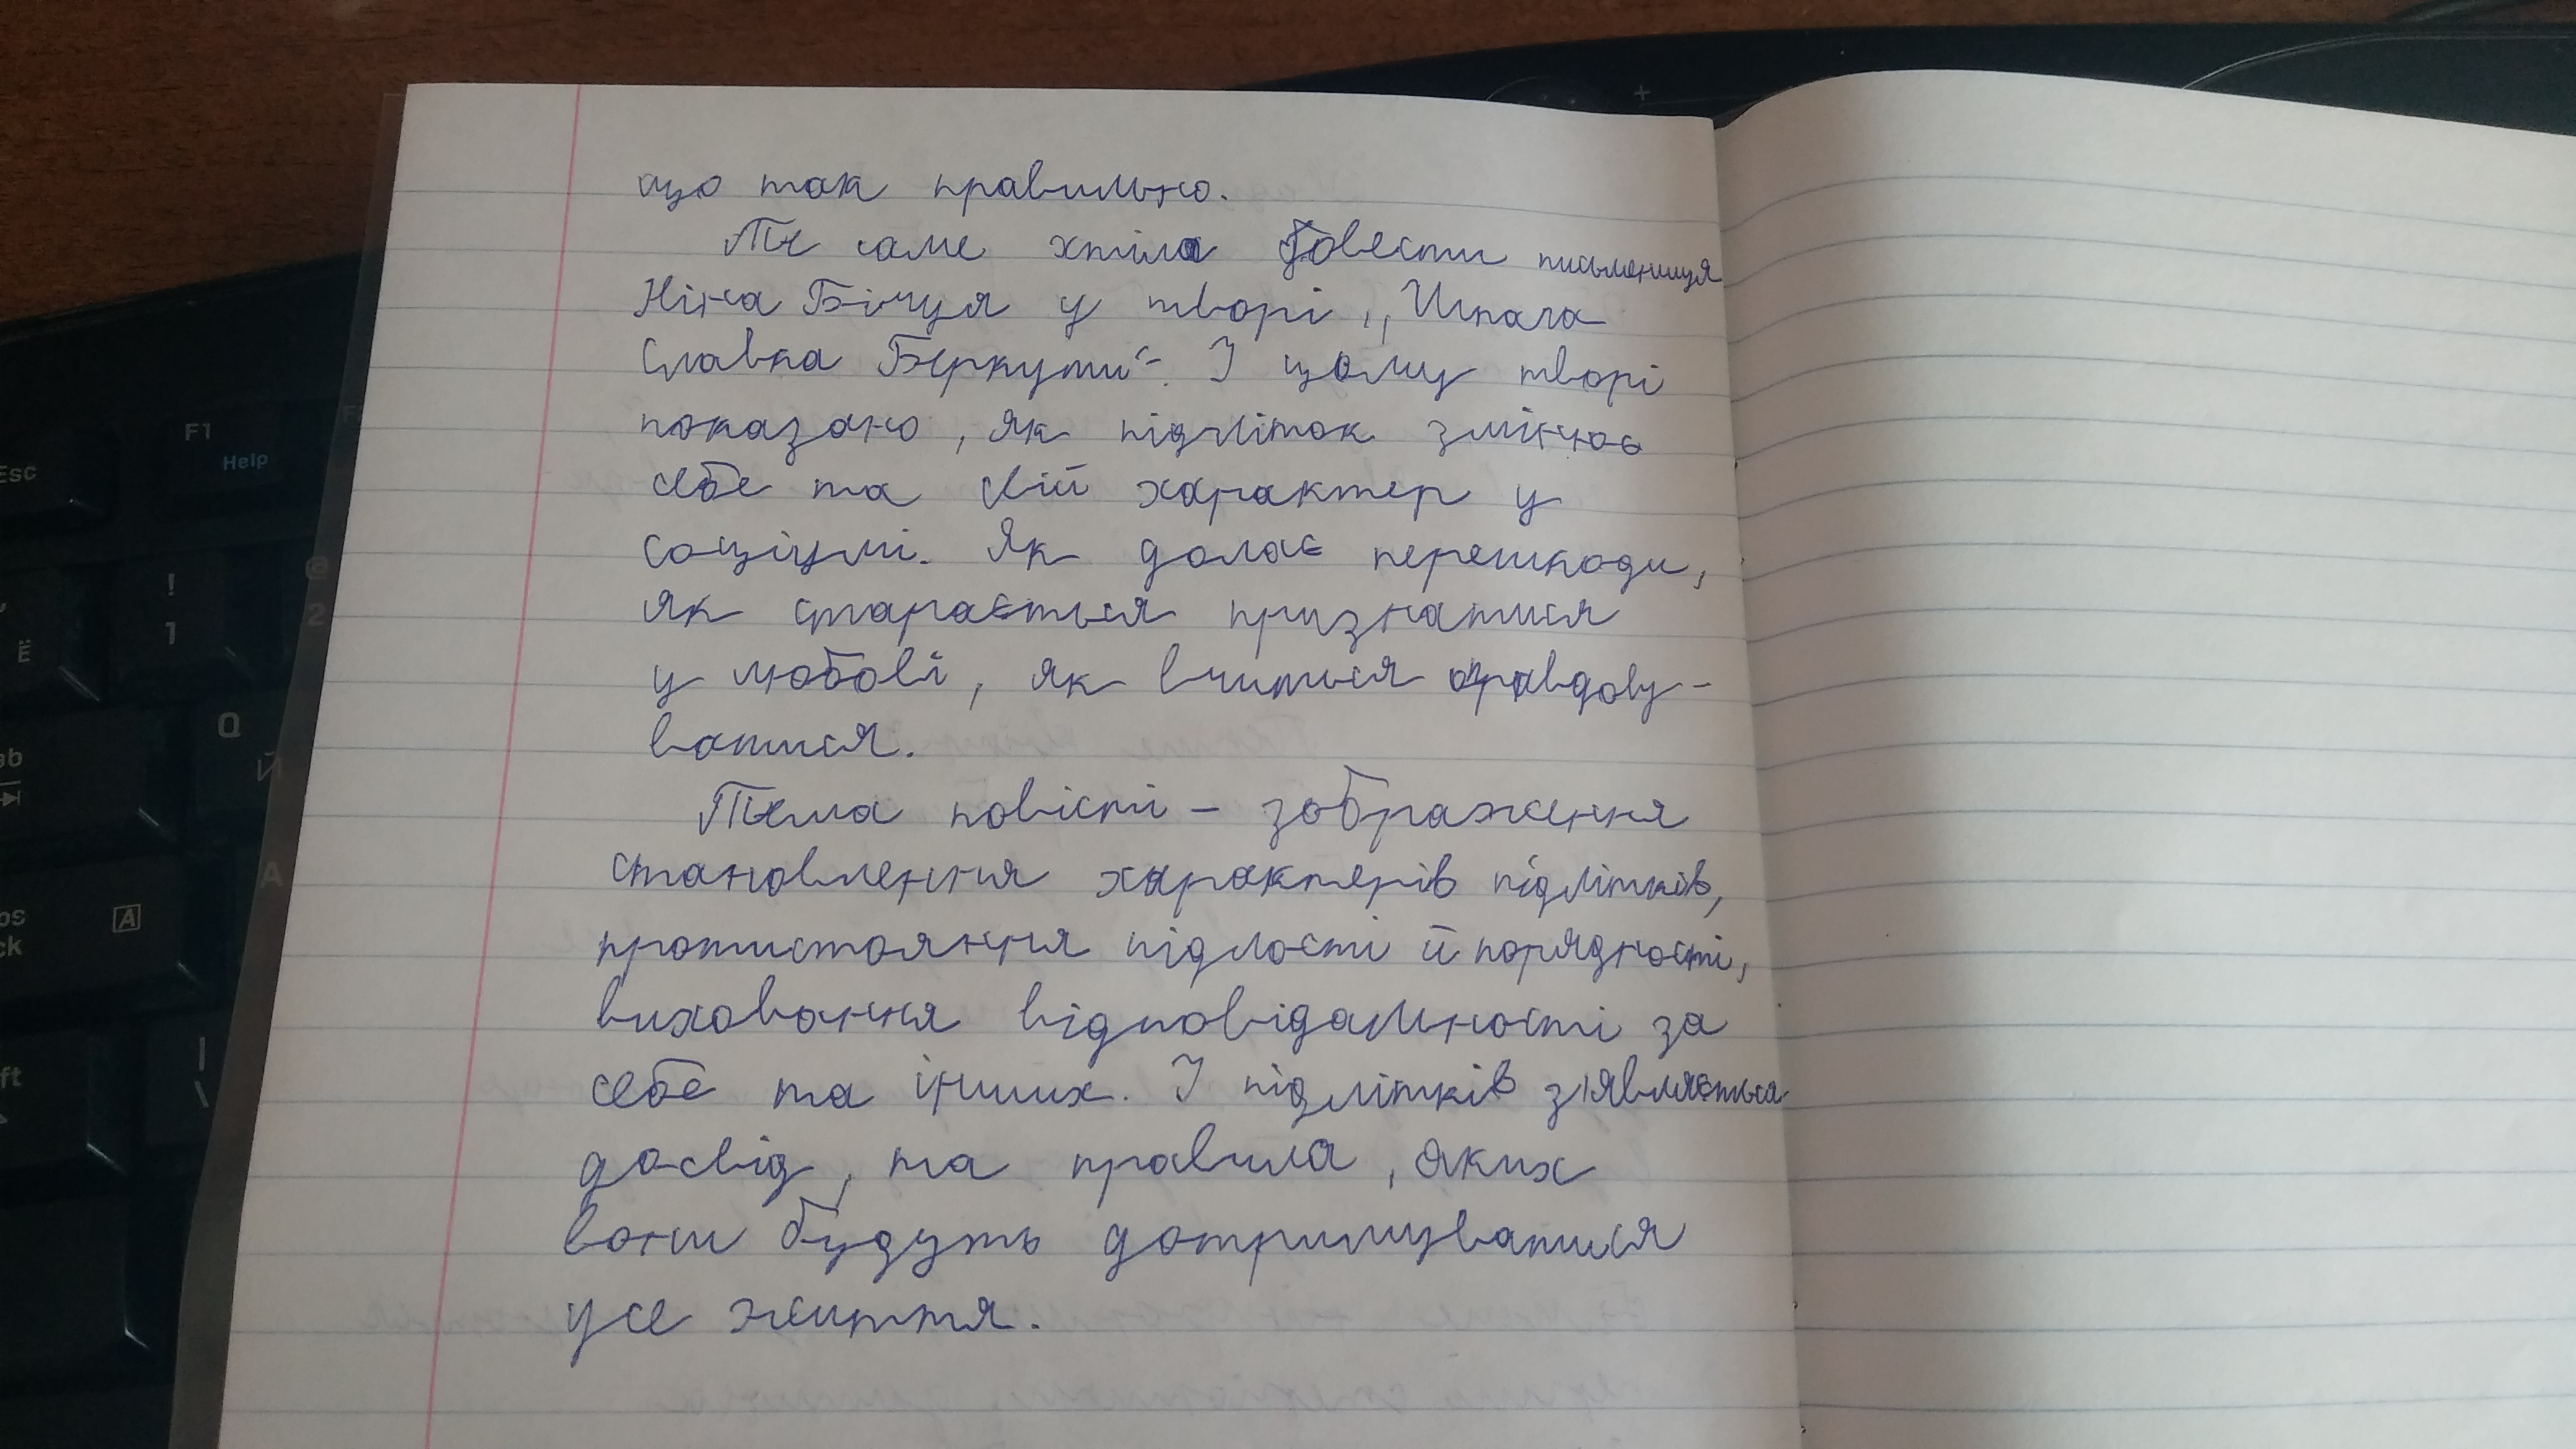 що так правильно.
Те саме хтіла довести письмениця
Ніна Бічуя у творі ,,Шпага
Славка Беркути“. У цьому творі
показано, як підліток змінює
себе та свій характер у
соціумі. Як долає перешкоди,
як старається признатися
у любові, як вчиться оправдову-
ватися.
Тема повісті – зображення
становлення характерів підлітків,
протистояння підлості й порядності,
виховання відповідальності за
себе та інших. У підлітків з'являється
досвід, та правила, яких
вони будуть дотримуватися
усе життя.
Esc
F1
Help
!
1
@
2
Ё
Q
Й
A